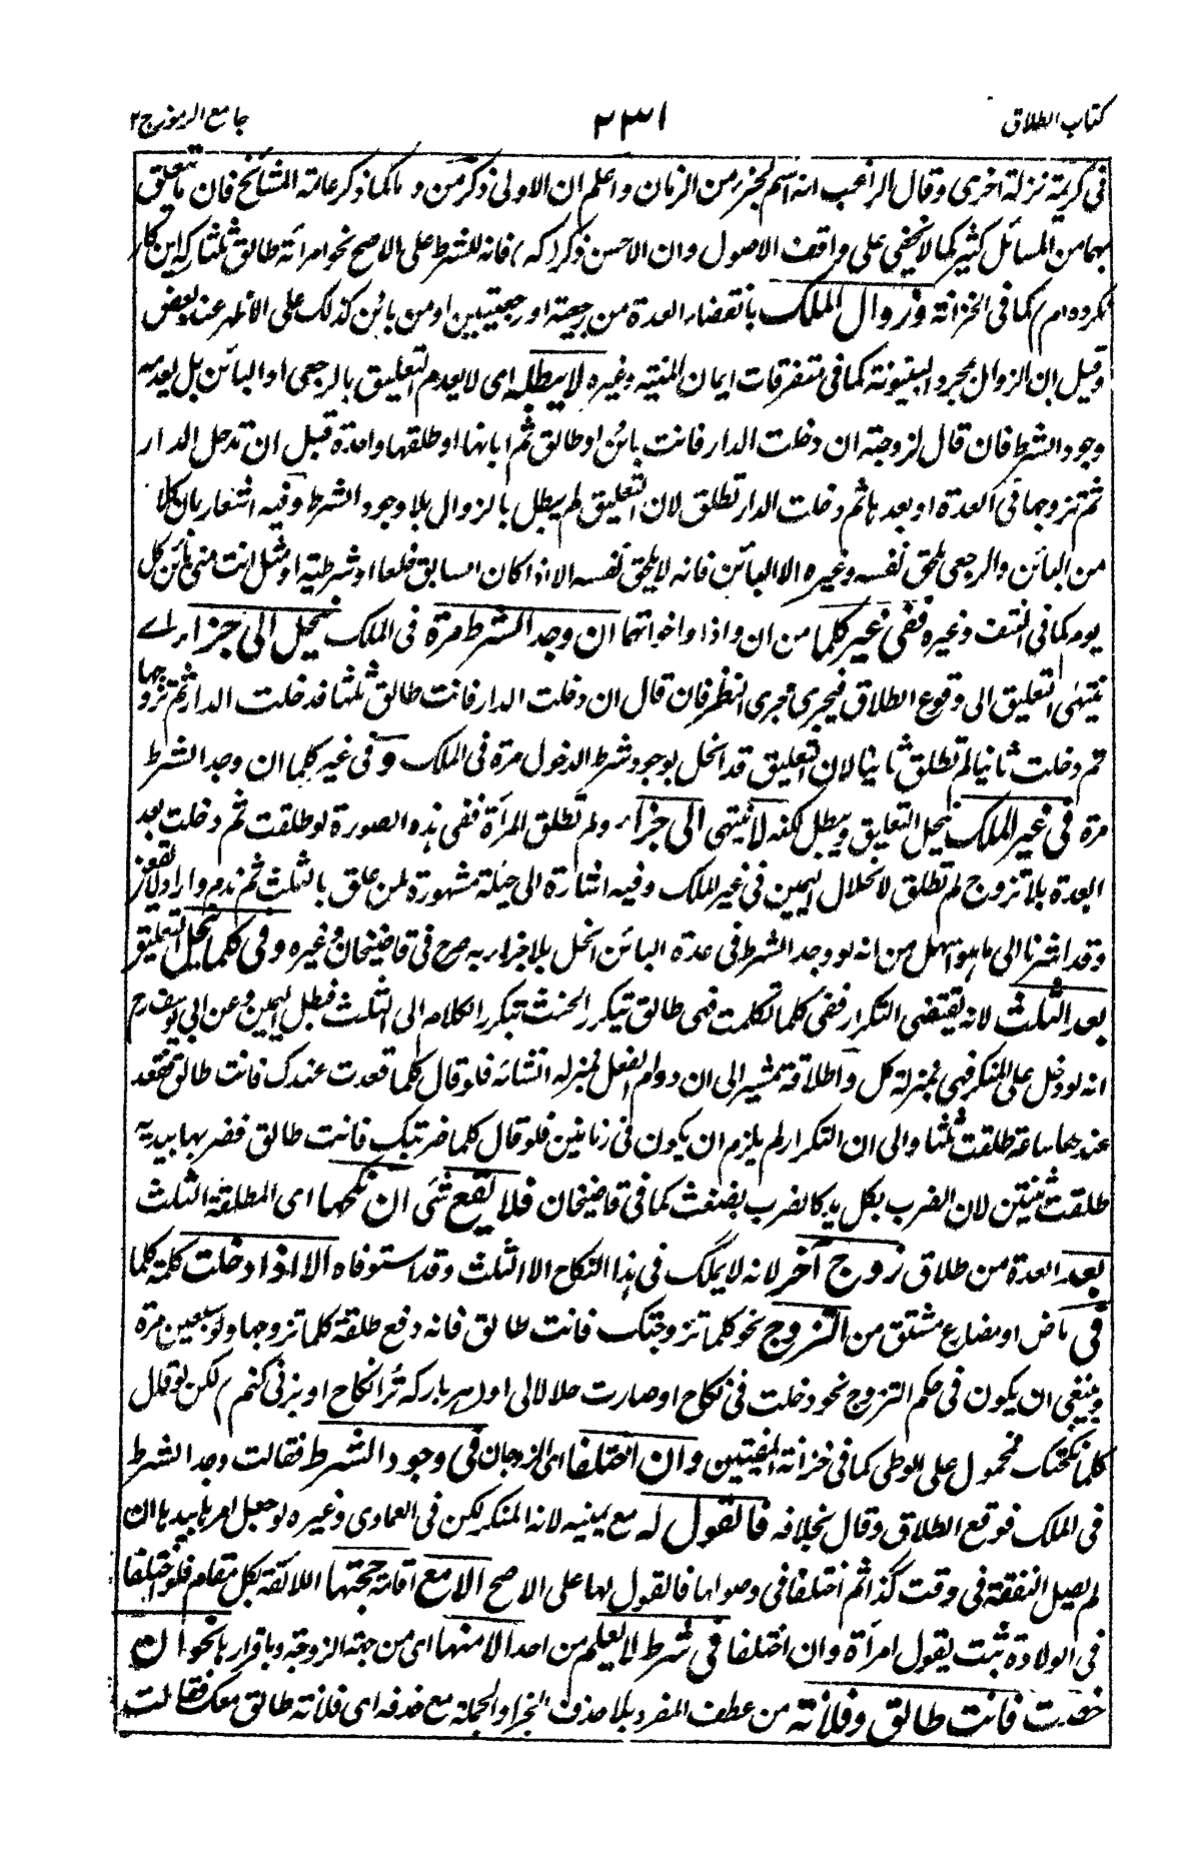 كتاب الطلاق
٢٣١
جامع الرموز ج ٢
فى كريمة نزلة اخرى وقال الراغب انه اسم لجزء من الزمان واعلم ان الاولى ذكر من و ما كما ذكر عامة المشائخ فان ما تعلق
بهما من المسائل كثير كما لا يخفى على واقف الاصول وان الاحسن ذكر كه فانه للشرط على الاصح نحو امرأته طالق ثلثا كه اين كار
نكرده ام كما فى الخزانة وزوال الملك بانقضاء العدة من رجعية او رجعيتين او من بائن كذلك على الاظهر عند بعض
وقيل ان الزوال بمجرد البينونة كما فى متفرقات ايمان المنية وغيره لا يبطله اى لا يعدم التعليق بالرجعى او البائن بل يعدمه
وجود الشرط فان قال لزوجته ان دخلت الدار فانت بائن او طالق ثم ابانها او طلقها واحدة قبل ان تدخل الدار
ثم تزوجها فى العدة او بعدها ثم دخلت الدار تطلق لان التعليق لم يبطل بالزوال بلا وجود الشرط وفيه اشعار بان كلا
من البائن والرجعى يلحق نفسه وغيره الا البائن فانه لا يلحق نفسه الا اذا كان السابق خلعا او شرطية او مثل انت منى بائن كل
يوم كما فى النتف وغيره ففى غير كلما من ان واذا واخواتهما ان وجد الشرط مرة فى الملك ينحل الى جزاء اے
ينتهى التعليق الى وقوع الطلاق فيجرى مجرى النظر فان قال ان دخلت الدار فانت طالق ثلثا فدخلت الدار ثم تزوجها
ثم دخلت ثانيا لم تطلق ثانيا لان التعليق قد انحل بوجود شرط الدخول مرة فى الملك و فى غير كلما ان وجد الشرط
مرة فى غير الملك ينحل التعليق ويبطل لكنه لا ينتهى الى جزاء ولم تطلق المرأة ففى هذه الصورة لو طلقت ثم دخلت بعد
العدة بلا تزوج لم تطلق لانحلال اليمين فى غير الملك وفيه اشارة الى حيلة مشهورة لمن علق بالثلث ثم ندم واراد
وقد اشرنا الى ما هو اسهل من انه لو وجد الشرط فى عدة البائن انحل بلا جزاء به صرح فى قاضيخان وغيره وفى كلما ينحل التعليق
بعد الثلث لانه يقتضى التكرار ففى كلما تكلمت فهى طالق يتكرر الحنث بتكرر الكلام الى الثلث فبطل اليمين وعن ابى يوسف رح
انه لو دخل على المنكر فهى بمنزلة كل و اطلاقه يشير الى ان دوام الفعل بمنزلة انشائه فلو قال كلما قعدت عندك فانت طالق فقعد
عندها ساعة طلقت ثلثا والى ان التكرار لم يلزم ان يكون فى زمانين فلو قال كلما ضربتك فانت طالق فضربها بيديه
طلقت ثنتين لان الضرب بكل يد كالضرب بضغث كما فى قاضيخان فلا يقع شئ ان نكحها اى المطلقة الثلث
بعد العدة من طلاق زوج آخر لانه لا يملك فى هذا النكاح الا الثلث وقد استوفاه الا اذا دخلت كلمة كلما
فى ماض او مضارع مشتق من التزوج نحو كلما تزوجتك فانت طالق فانه دفع طلقة كلما تزوجها ولو سبعين مرة
وينبغى ان يكون فى حكم التزوج نحو دخلت فى نكاح او صارت حلالا لى او هر بار كه ترا نكاح او بزنى كنم لكن لو قال
كلما نكحتك فمحمول على الوطى كما فى خزانة المفتيين وان اختلفا اى الزوجان فى وجود الشرط فقالت وجد الشرط
فى الملك فوقع الطلاق وقال بخلافه فالقول له مع يمينه لانه المنكر لكن فى العمادى وغيره لو جعل امرها بيدها ان
لم يصل النفقة فى وقت كذا ثم اختلفا فى وصولها فالقول لها على الاصح الا مع اقامة حجتها اللائقة بكل مقام فلو اختلفا
فى الولادة ثبت بقول امرأة وان اختلفا فى شرط لا يعلم من احد الا منها اى من جهة الزوجة وباقرارها نحو ان
حضت فانت طالق وفلانة من عطف المفرد بلا حذف الجزاء والجملة مع حذفه اى فلانة طالق معك فقالت